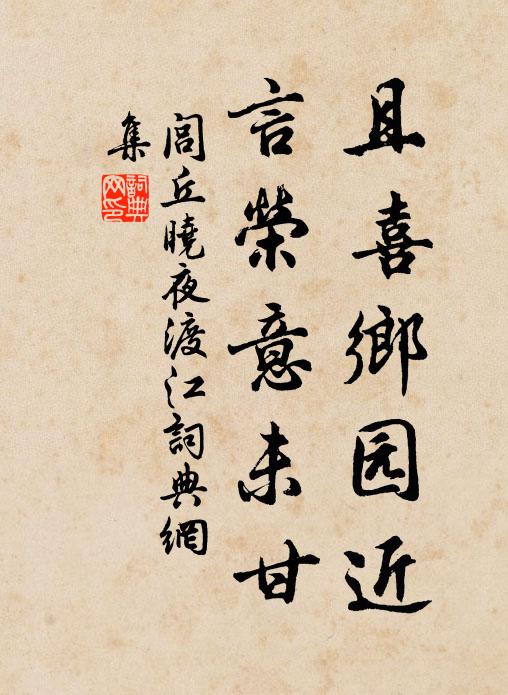 且喜鄉园近
言榮意未甘
閭丘曉夜渡江詞典網
集
詞典网印